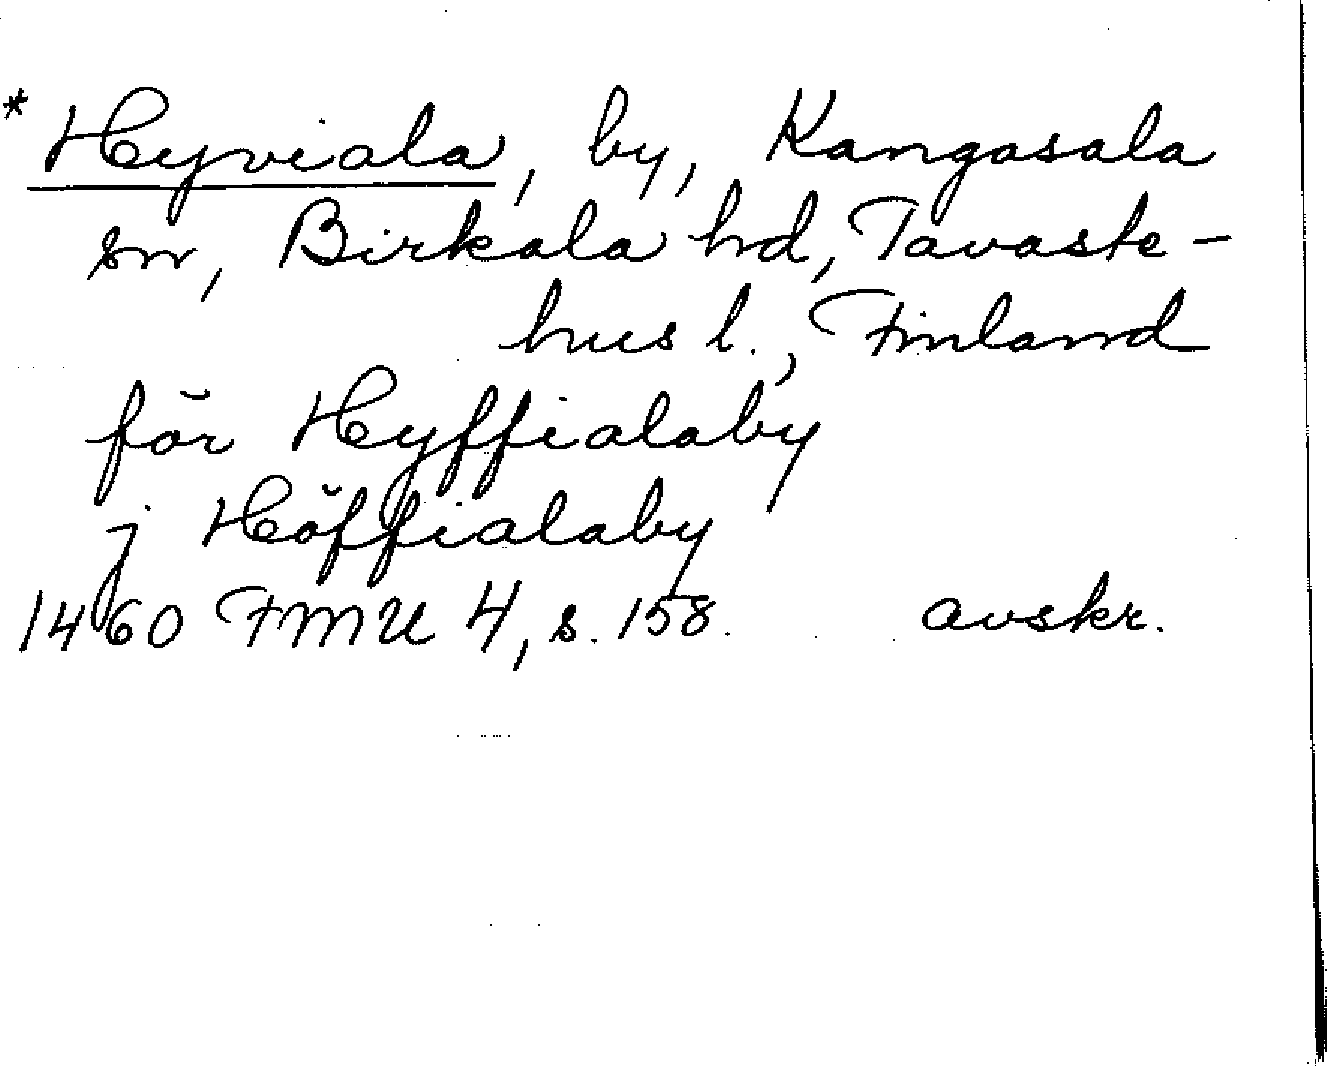 * Hyviala, by, Kangasala
sn, Birkala hd, Tavaste-
hus l., Finland
för Hyffialaby
j Höffialaby
1460 FMU 4, s. 158. avskr.